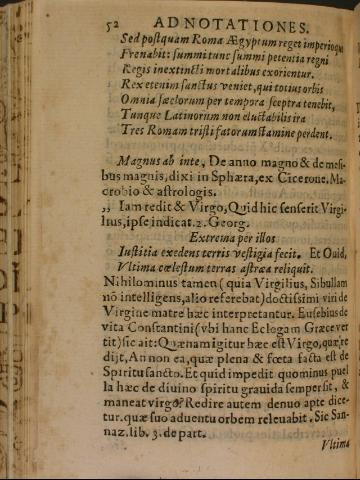 52 ADNOTATIONES.
Sed postquam Roma Ægyptum reget imperioque
Frenabit: summi tunc summi potentia regni
Regis inextincti mortalibus exorientur.
Rex etenim sanctus veniet, qui totius orbis
Omnia sæclorum per tempora sceptra tenebit,
Tunque Latinorum non eluctabilis ira
Tres Romam tristi fatorum stamine perdent.
Magnus ab inte, De anno magno & de mesi-
bus magnis, dixi in Sphæra, ex Cicerone, Ma-
crobio & astrologis.
„ Iam redit & Virgo, Quid hic senserit Virgi-
lius, ipse indicat. 2. Georg.
Extrema per illos
Iustitia exedens terris vestigia fecit. Et Ouid,
Vltima cœlestum terras astræa reliquit.
Nihilominus tamen (quia Virgilius, Sibullam
nō intelligens, alio referebat) doctissimi viri de
Virgine matre hæc interpretantur. Eusebius de
vita Constantini (vbi hanc Eclogam Græce ver
tit) sic ait: Quænam igitur hæc est Virgo, quæ re
dijt, An non ea, quæ plena & fœta facta est de
Spiritu sancto. Et quid impedit quominus puel
la hæc de diuino spiritu grauida semper sit, &
maneat virgo? Redire autem denuo apte dice-
tur. quæ suo aduentu orbem releuabit. Sic San-
naz. lib. 3. de part.
Vltima